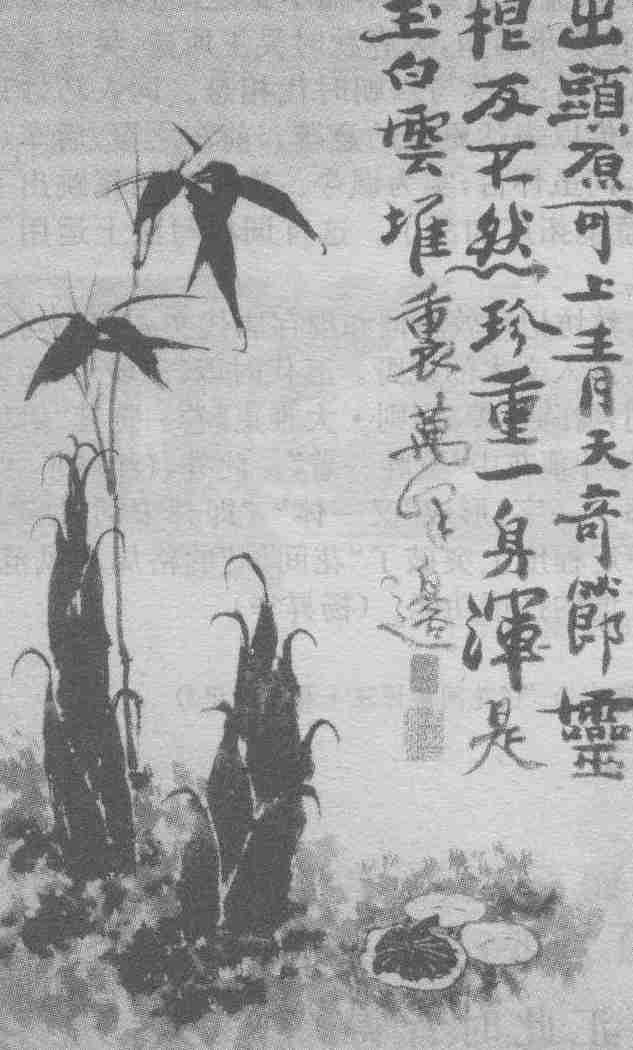 出頭原可上青天奇節靈
根反不然珍重一身渾是
玉白雲堆裏邊